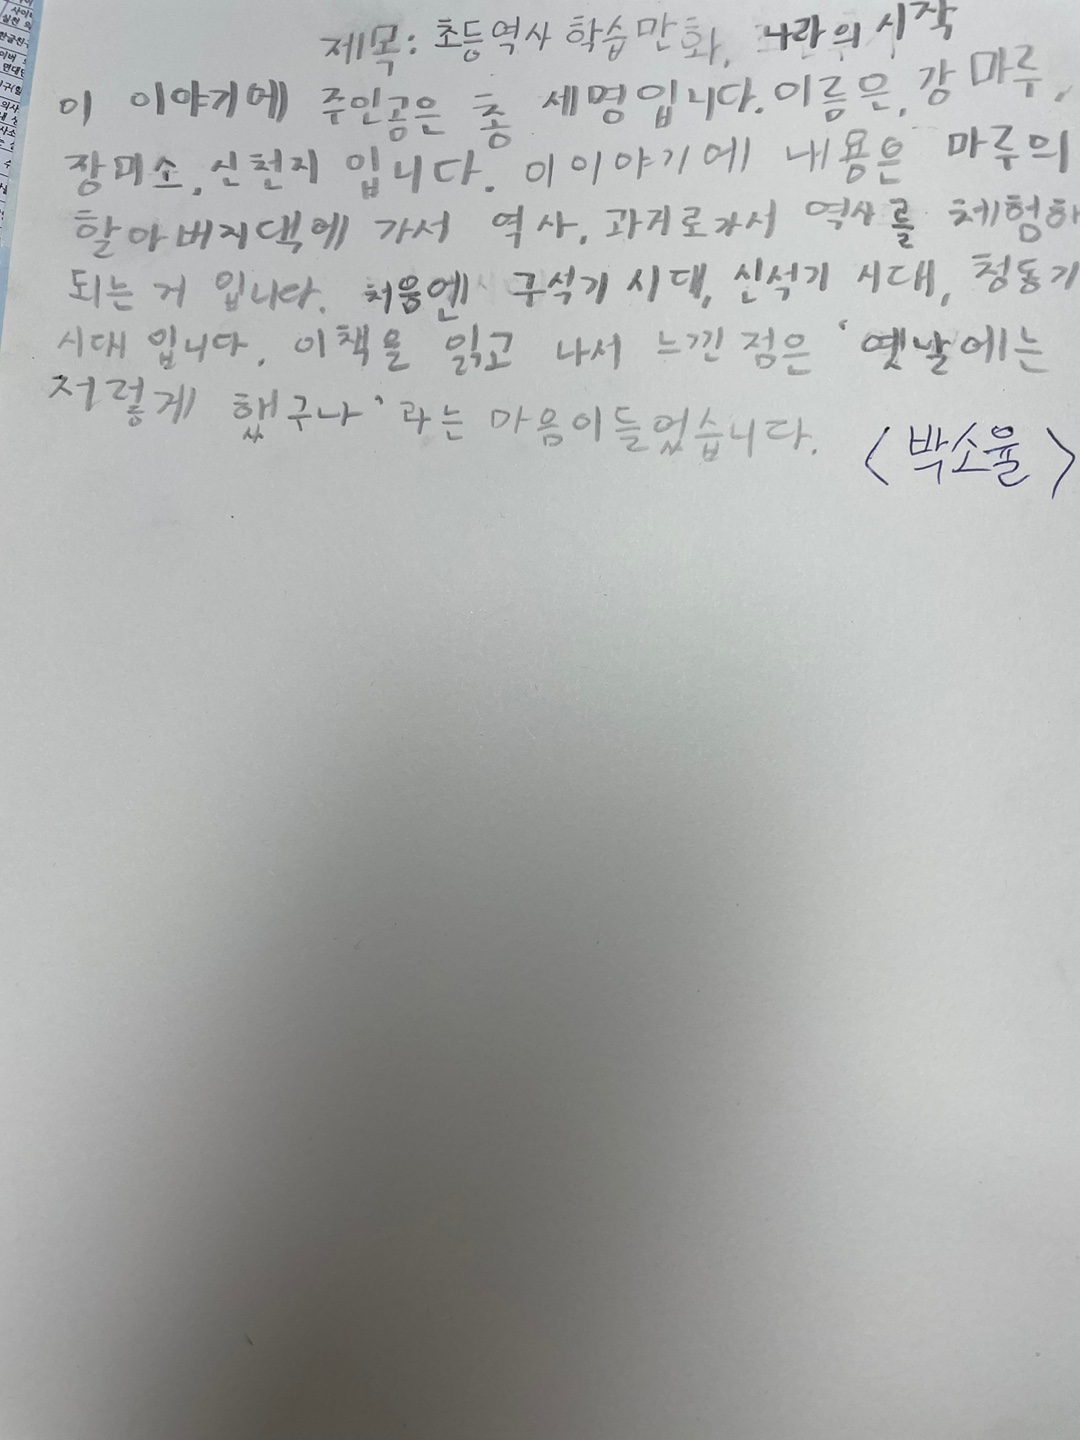 제목: 초등역사 학습만화, 나라의 시작
이 이야기에 주인곰은 총 세명입니다. 이름은, 강 마루,
장미소, 신천지 입니다. 이이야기에 내용은 마루의
할아버지댁에 가서 역사, 과거로가서 역사를 체험하
되는 거 입니다. 처음엔 구석기 시대, 신석기 시대, 청동기
시대 입니다. 이책을 읽고 나서 느낀 점은 '옛날에는
저렇게 했구나' 라는 마음이들었습니다.
<박소율>